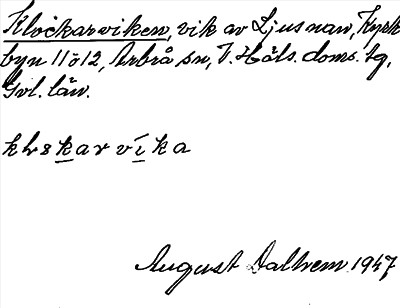 Klockarviken, vik av Ljusnan, Kyrk
byn 11 o 12, Arbrå sn, V. Häls. doms. tg,
Gvl. län.
klɔkar víka
August Dalhem 1947